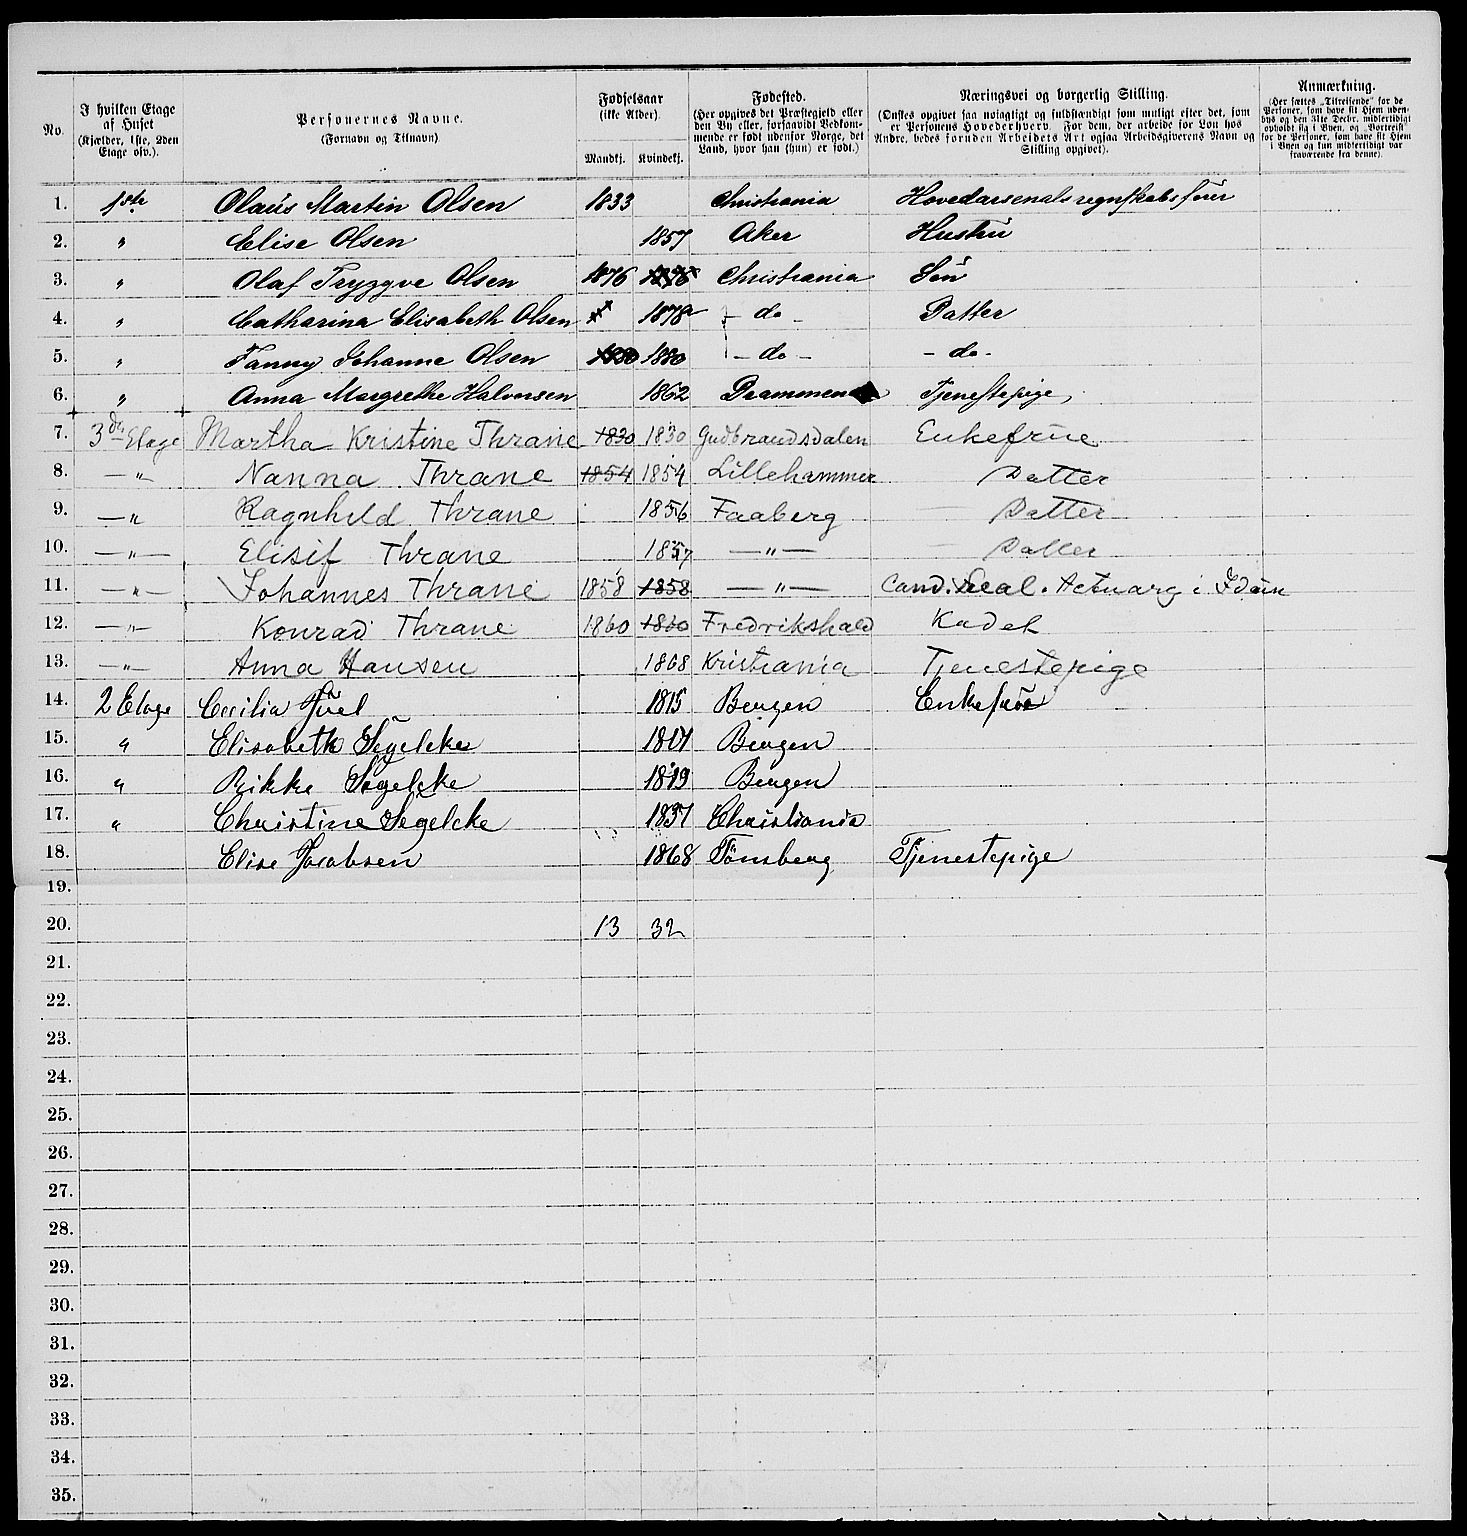 No. I hvilken Etage af Huset (Kjælder, 1ste, 2den Etage osv.). Personernes Navne. (Fornavn og Tilnavn). Fødselsaar (ikke Alder). Mandkj. Kvindekj. Fødested. (Her opgives det Præstegjeld eller den By eller, forsaavidt Vedkommende er født udenfor Norge, det Land, hvor han (hun) er født.) Næringsvei og borgerlig Stilling. (Ønskes opgivet saa nøiagtigt og fuldstændigt som muligt efter det, som er Personens Hovederhverv. For dem, der arbeide for Løn hos Andre, bedes foruden Arbeidets Art ogsaa Arbeidsgiverens Navn og Stilling opgivet). Anmærkning. (Her sættes „Tilreisende" for de Personer, som have sit Hjem udenbys og den 31te Decbr. midlertidigt opholdt sig i Byen, og „Bortreist" for de Personer, som have sit Hjem i Byen og kun midlertidigt var fraværende fra denne).
1. 1ste Olaus Martin Olsen 1833 Christiania Hovedarsenalsregnskabsfører
2. " Elise Olsen 1857 Aker Hustru
3. " Olaf Trygve Olsen 1876 1876 Christiania Søn
4. " Catharina Elisabeth Olsen 1878 - do - Datter
5. " Fanny Johanne Olsen 1880 1880 - do - - do -
6. " Anna Margrethe Halvorsen 1862 Drammen Tjenestepige
7. 3die Etage Martha Kristine Thrane 1830 1830 Gudbrandsdalen Enkefrue
8. — " Nanna Thrane 1854 1854 Lillehammer Datter
9. — " Ragnhild Thrane 1856 Faaberg Datter
10. — " — Elisif Thrane 1857 — " — Datter
11. — " — Johannes Thrane 1858 1858 — " — Cand. Real. Actuar i Idun
12. — " — Konrad Thrane 1860 1860 Fredrikshald Kadet
13. — " — Anna Hansen 1868 Kristiania Tjenestepige
14. 2 Etage Cecilia Juel 1815 Bergen Enkefrue
15. " Elisabeth Segelcke 1817 Bergen
16. " Rikke Segelcke 1819 Bergen
17. " Christine Segelcke 1837 Christiania
18. Elise Jacobsen 1868 Tønsberg Tjenestepige
19.
20. 13 32
21.
22.
23.
24.
25.
26.
27.
28.
29.
30.
31.
32.
33.
34.
35.